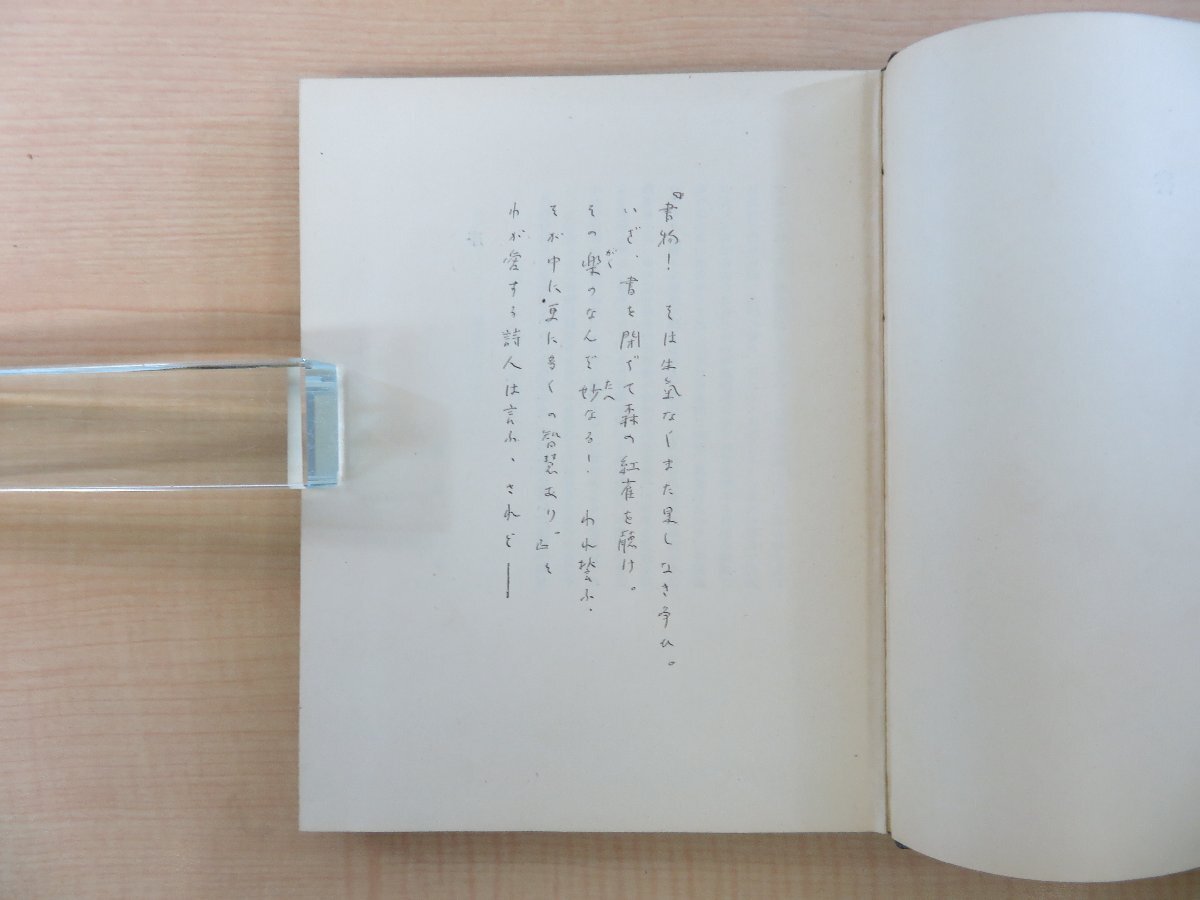 『書物！　そは生氣なくまた果しなき爭ひ。
いざ、書を閉ぢて森の紅雀を聽け。
その楽のなんぞ妙なる！　われ誓ふ、
そが中に更に多くの智慧あり』と
わが愛する詩人は言ふ、されど―
がく
たへ
序